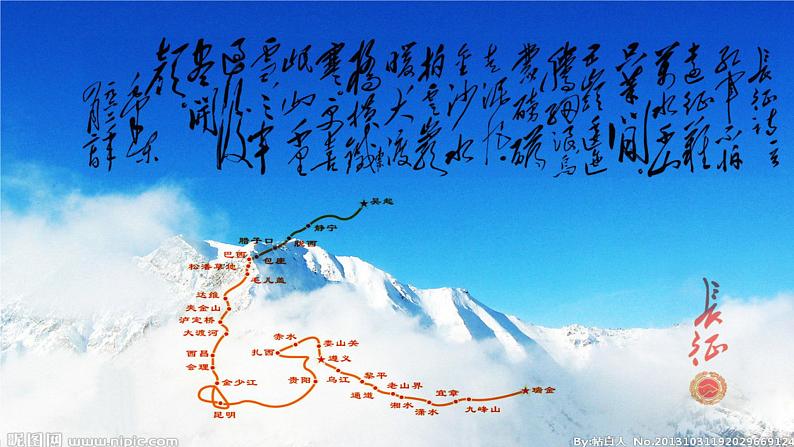 长征诗一首
红军不怕
远征难
万水千山
只等闲。
五岭逶迤
腾细浪乌
蒙磅礴
走泥丸。
金沙水
拍云崖
暖大渡
橋横鐵索
寒。更喜
岷山千里
雪。三军
过後
尽开
颜。
毛泽东
吴起
静宁
腊子口
陇西
巴西
包座
松潘草地
毛儿盖
达维
夹金山
泸定桥
大渡河
西昌
会理
金少江
昆明
赤水
扎西
娄山关
遵义
贵阳
乌江
黎平
通道
老山界
湘水
潇水
宜章
九峰山
瑞金
長征
昵图网
www.nipic.com
By:帖白人 No.20131031192029669124